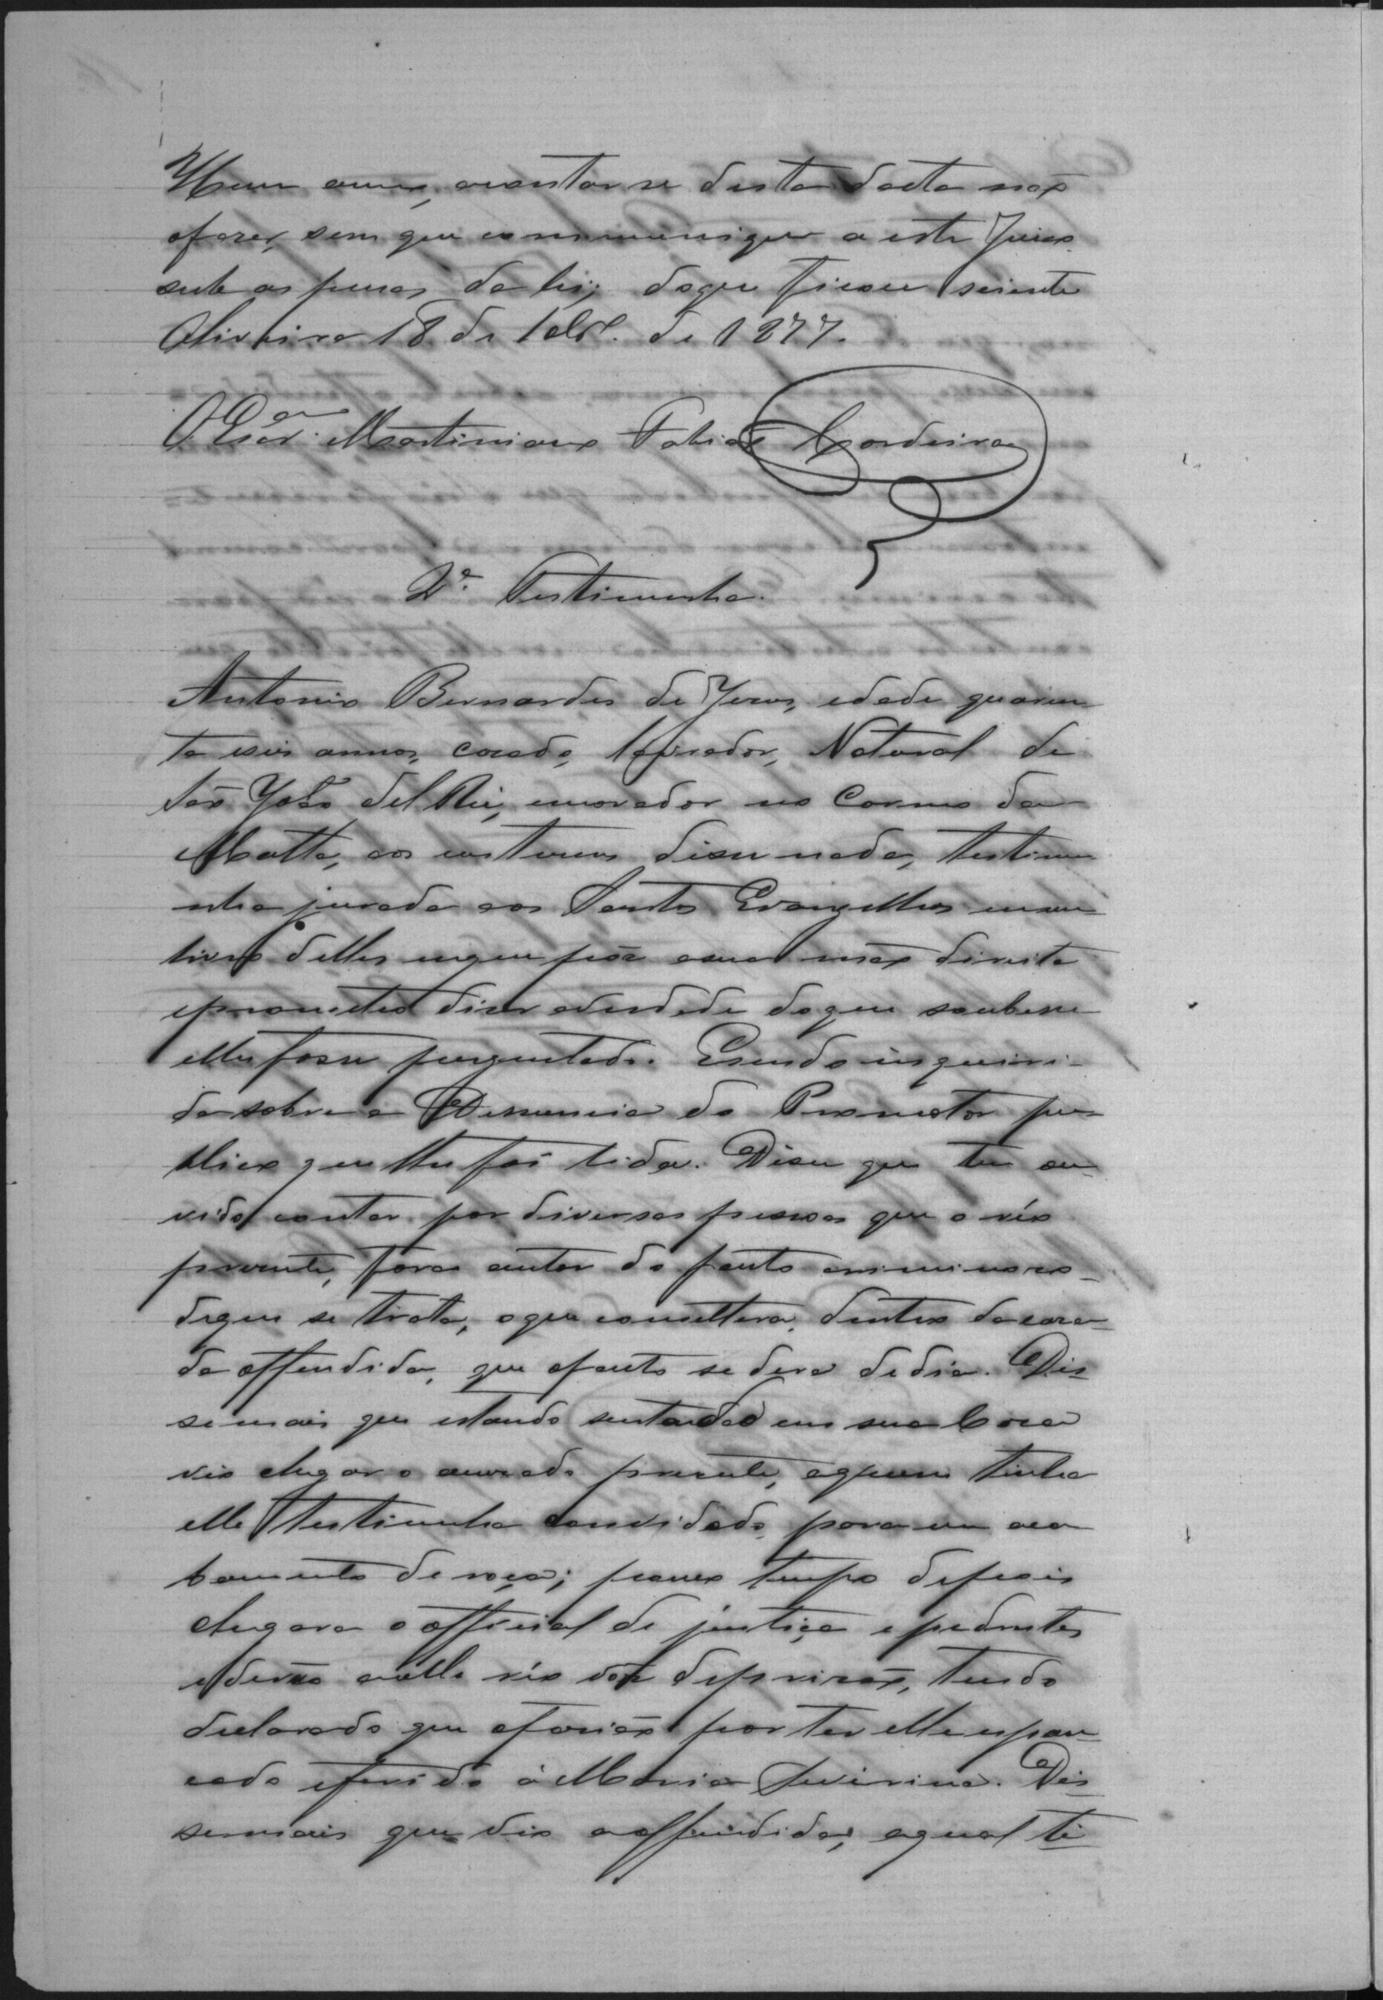 Hum anno, acontar se desta dacta não
ofazer, sem que communique a este Juizo
sube as penas da lei; doque ficou sciente
Oliveira 18 de de 1877.
O Escr.am Martiniano Fabiao Cordeiro
2ª. Testimunha.
Antonio Bernardes de Jesus, edade quaren
ta e seis annos, cazado, lavrador, Natural de
São João del Rei, morador no Carmo da
Matta, aos custumes disse nada, testimu
nha jurada aos Santos Evangelhos em um
livro delles em que pôz a sua mão direita
eprometteo dizer averdade doque soubesse
elhe fosse perguntado. Esendo inqueri-
da sobre a Denuncia do Promotor pu
blico que lhe foi lida. Disse que tem ou
vido contar por diversas pessoas que o réo
presente, fora autor do facto criminoso
dequem se trata, oque comettera, dentro da caza
da offendida, que ofacto se dera de dia. Dis
se mais que estando sentado em sua Casa
vio chegar o accusado presente, aquem tinha
elle testimunha convidado para um aca
bamento de roça; pouco tempo depois
chegara o official de justiça e pedestes
ederão aelle réo vóz de prizão, tendo
declarado que ofazião por ter elle espan
cado eferido á Maria Siverina. Dis
se mais que vio aoffendida, aqual ti